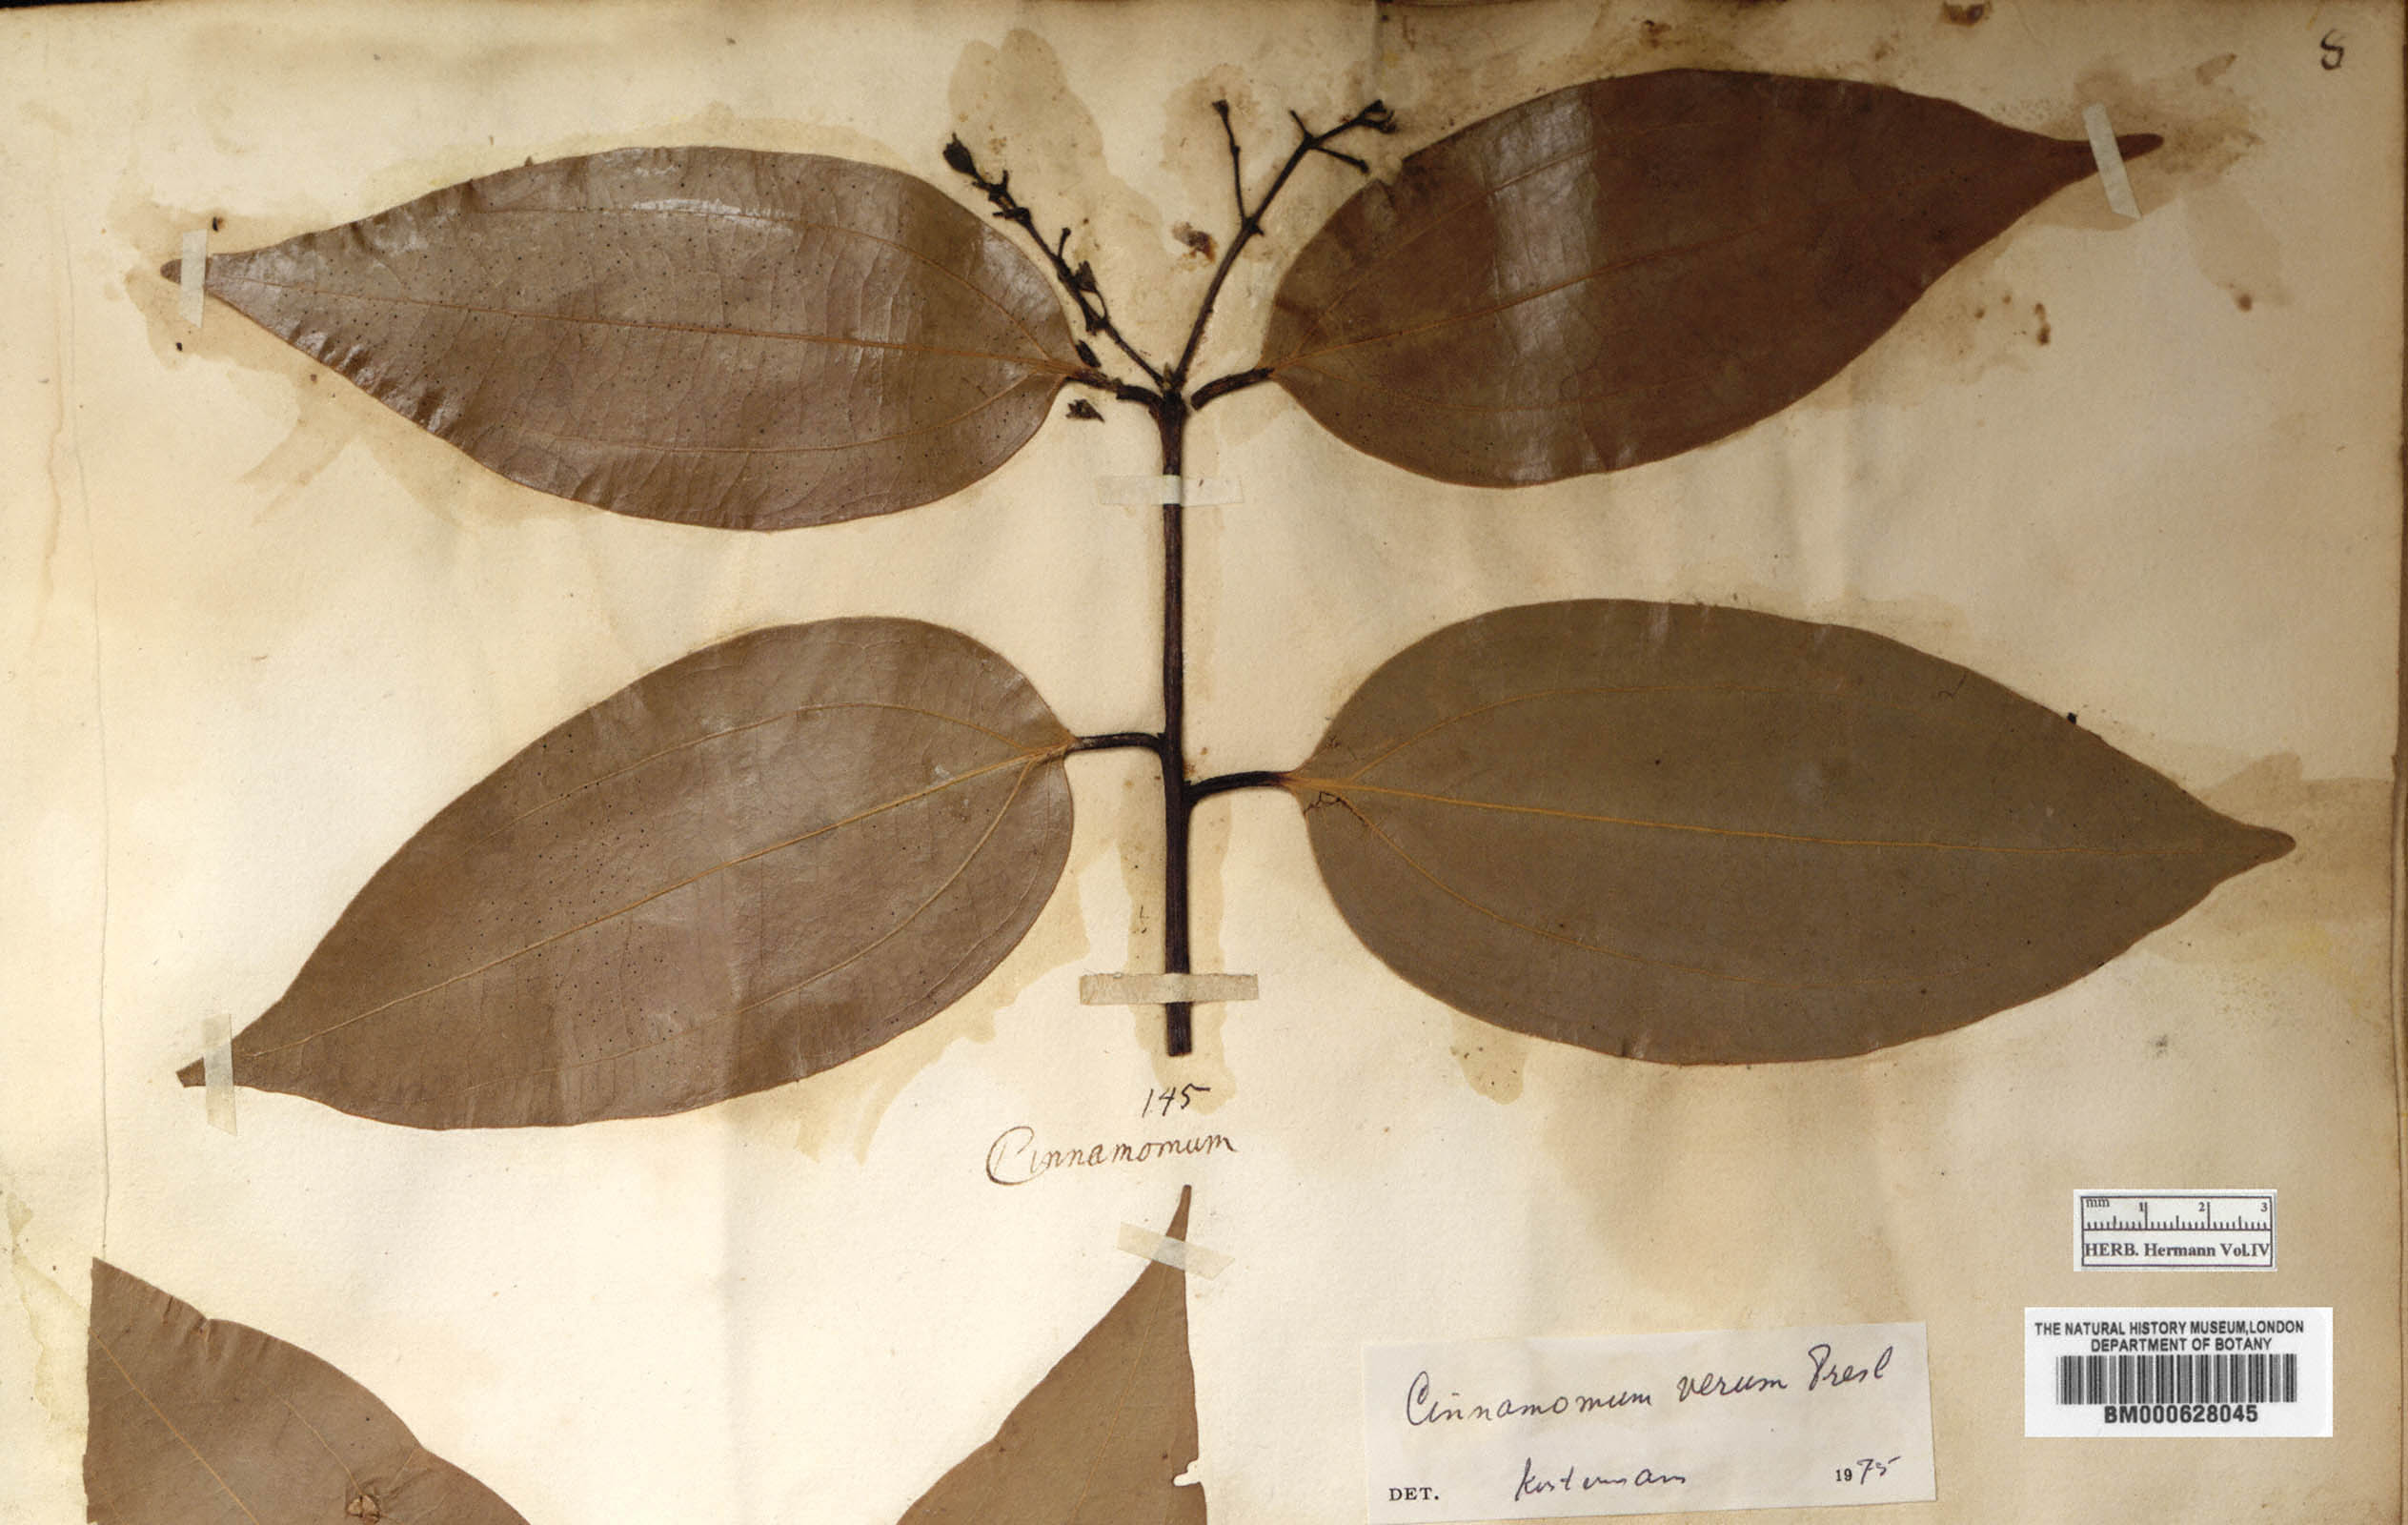 8
145
Cinnamomum
mm 1 2 3
HERB. Hermann Vol.IV
THE NATURAL HISTORY MUSEUM,LONDON
DEPARTMENT OF BOTANY
BM000628045
Cinnamomum verum Presl
DET. Kostermans 1975